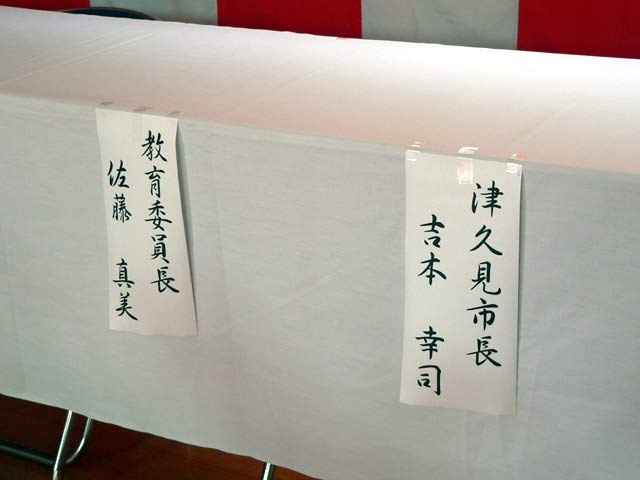 津久見市長
吉本 幸司
教育委員長
佐藤 真美